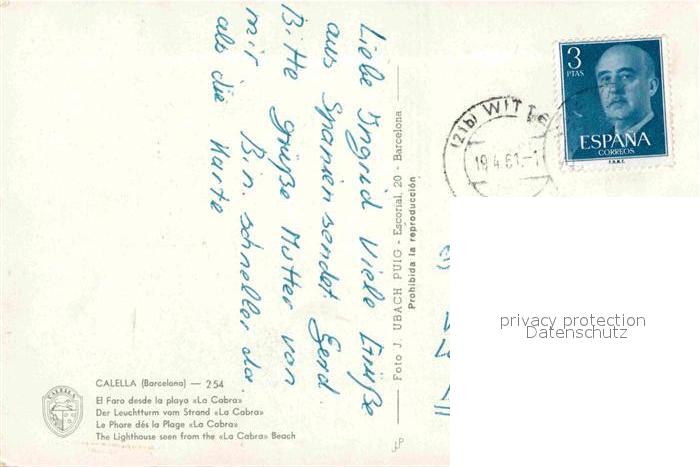 Liebe Ingrid Viele Grüße
aus Spanien sendet Gerd.
Bitte grüße Mutter von
mir. Bin schneller da
als die Karte
CALELLA (Barcelona) — 254
El Faro desde la playa «La Cabra»
Der Leuchtturm vom Strand «La Cabra»
Le Phare dés la Plage «La Cabra»
The Lighthouse seen from the «La Cabra» Beach
CALELLA
Foto J. UBACH PUIG - Escorial, 20 - Barcelona
Prohibida la reproducción
(21b) WITTE
19.4.61.-1
3
PTAS
ESPAÑA
CORREOS
F.N.M.T.
privacy protection
Datenschutz